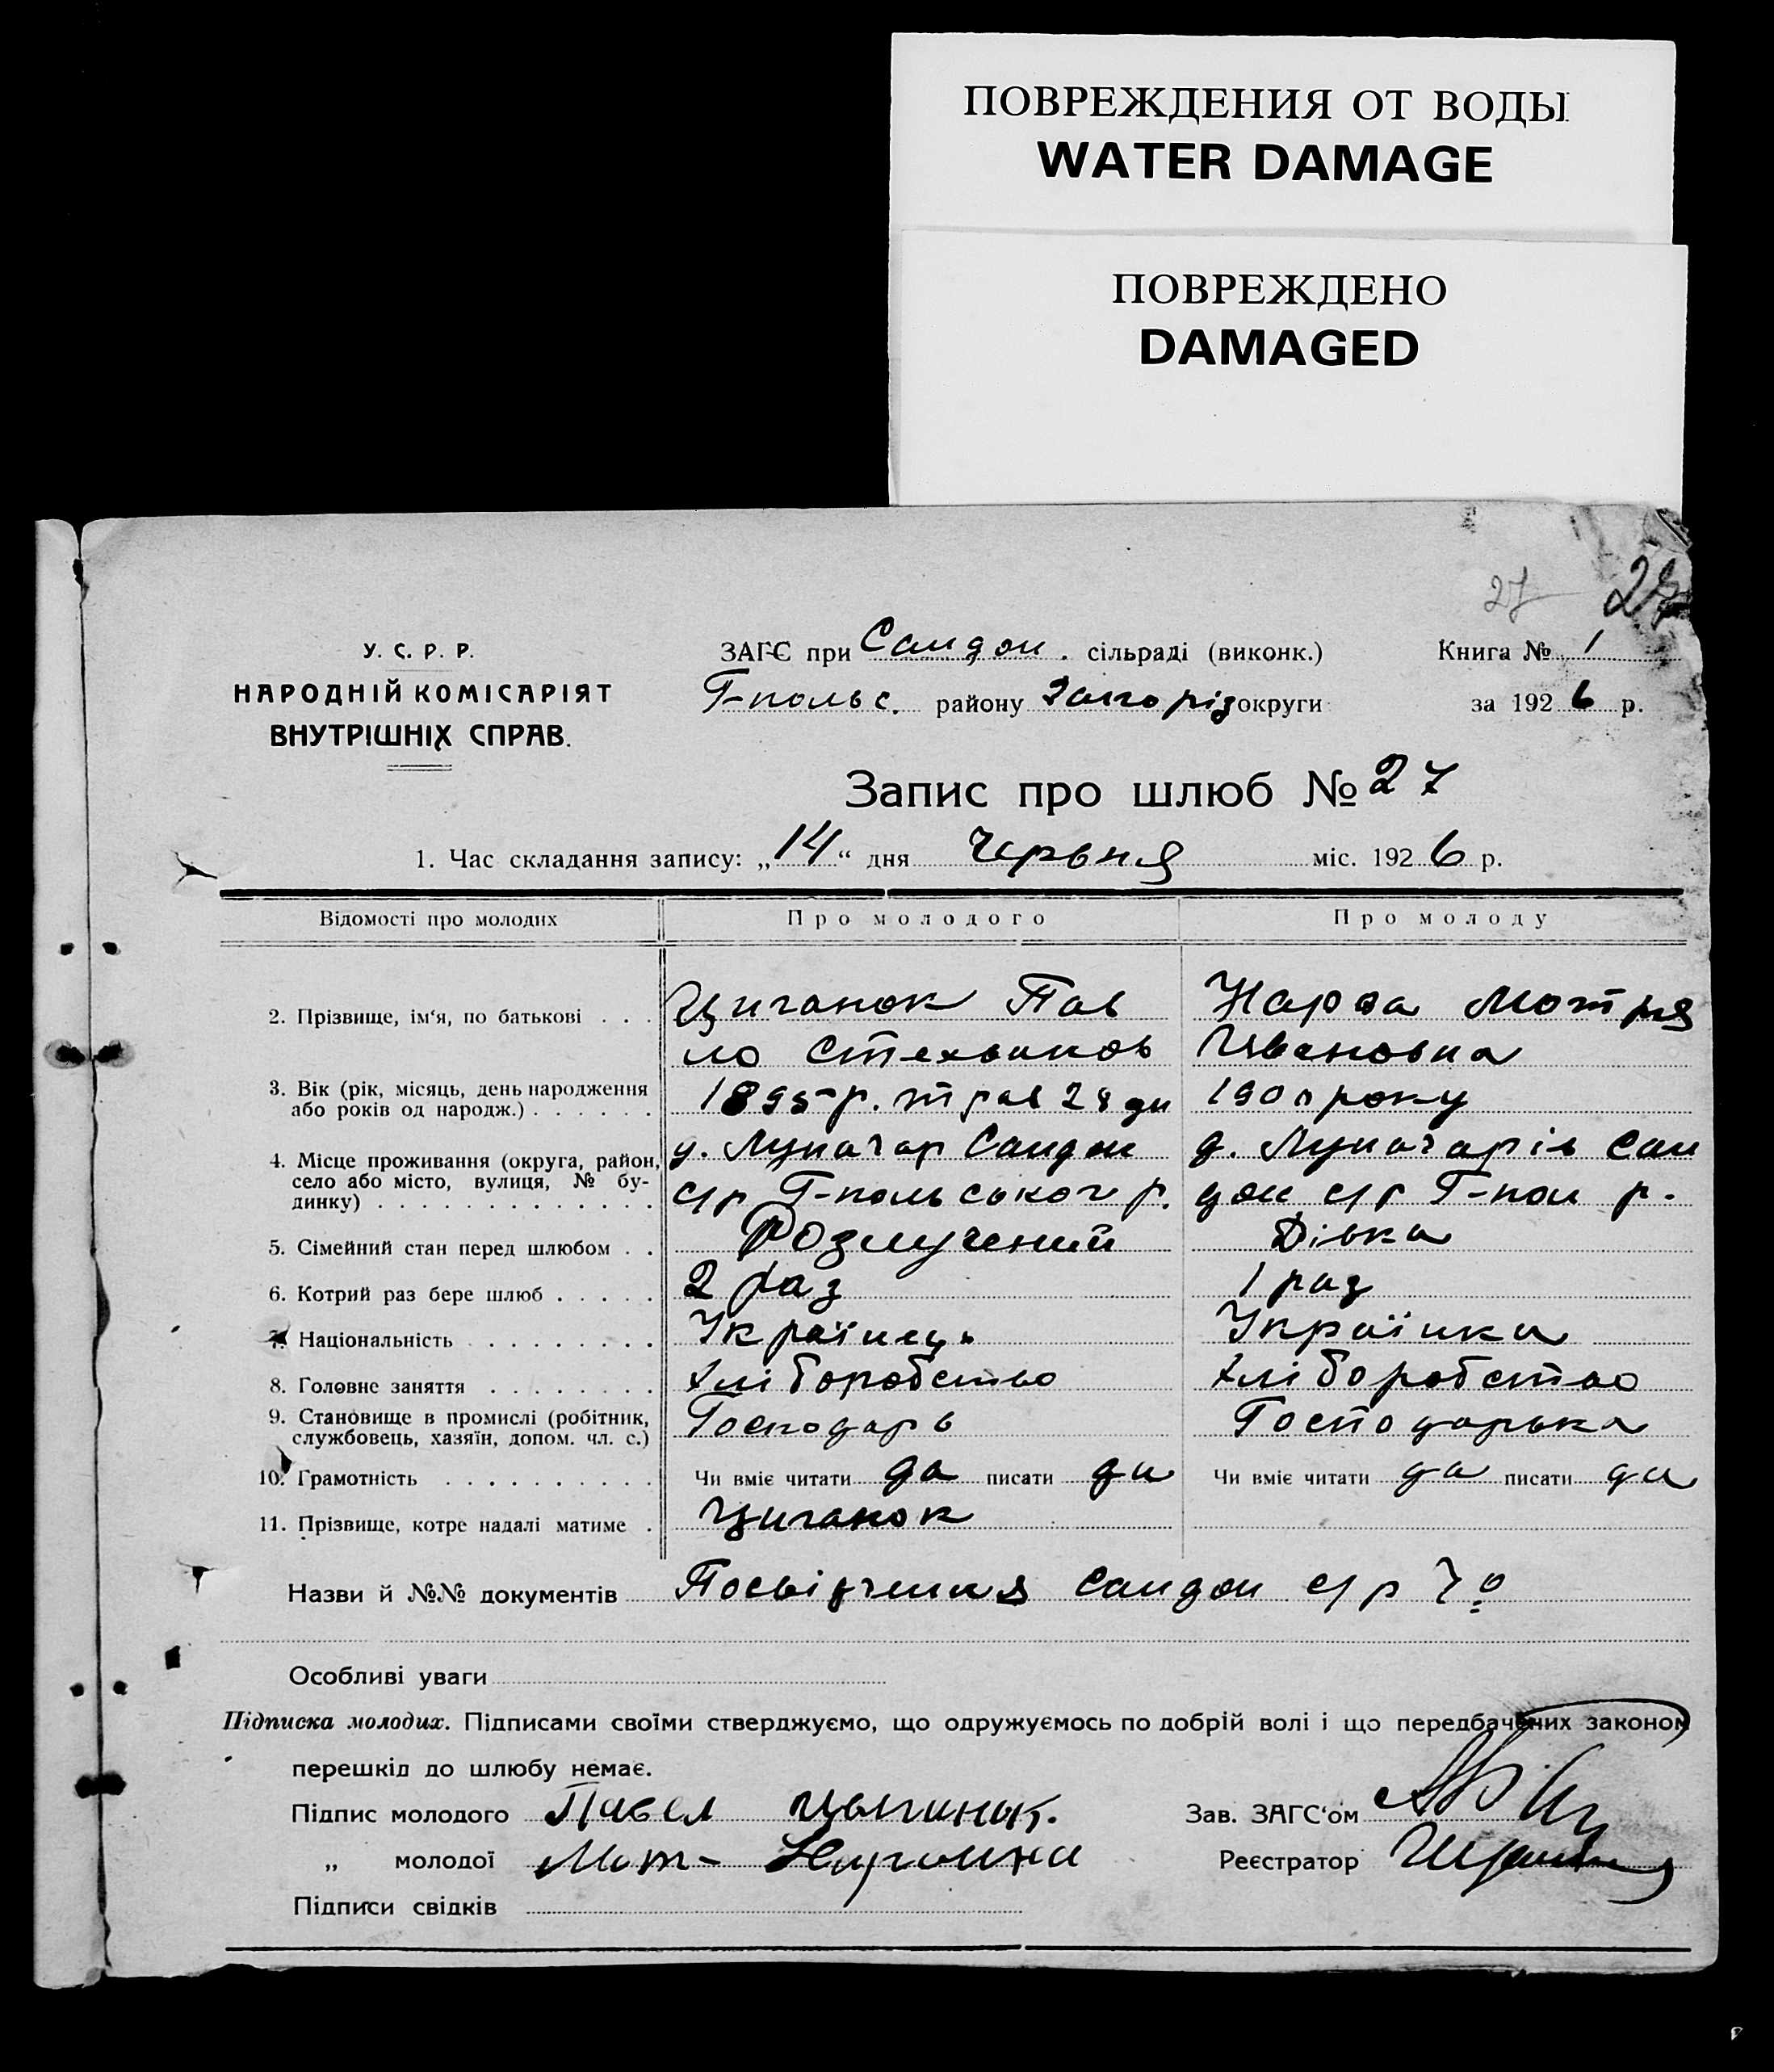 ПОВРЕЖДЕНИЯ ОТ ВОДЫ
WATER DAMAGE
ПОВРЕЖДЕНО
DAMAGED
27 27
У. С. Р. Р.
НАРОДНІЙ КОМІСАРІЯТ
ВНУТРІШНІХ СПРАВ.
ЗАГС при Сандон. сільраді (виконк.) Книга № 1
Г-польс. району Запоріз округи за 1926 р.
Запис про шлюб № 27
1. Час складання запису: „14“ дня Червня міс. 1926 р.
Відомості про молодих Про молодого Про молоду
2. Прізвище, ім‘я, по батькові . . . Циганок Пав Мотря
ло Ивановна
3. Вік (рік, місяць, день народження
або років од народж.) . . . . . . 1895 р. трав 28 дн 1900 року
4. Місце проживання (округа, район,
село або місто, вулиця, № бу-
динку) . . . . . . . . . . . . .
д. Луначар Сандон д. Луначарів Сан
с/р Г-польського р. дон с/р Г-пол р.
5. Сімейний стан перед шлюбом . . Розлучений Дівка
6. Котрий раз бере шлюб . . . . . 2 раз 1 раз
7. Національність . . . . . . . . Українець Українка
8. Головне заняття . . . . . . . . Хліборобство Хліборобство
9. Становище в промислі (робітник,
службовець, хазяїн, допом. чл. с.) Господарь Господарька
10. Грамотність . . . . . . . . . . Чи вміє читати да писати да Чи вміє читати да писати да
11. Прізвище, котре надалі матиме . Циганок
Назви й №№ документів Посвідчення Сандон с/р
Особливі уваги
Підписка молодих. Підписами своїми стверджуємо, що одружуємось по добрій волі і що передбачених законом
перешкід до шлюбу немає.
Підпис молодого Павел Цыганок. Зав. ЗАГС‘ом
„ молодої Мот- Реєстратор
Підписи свідків